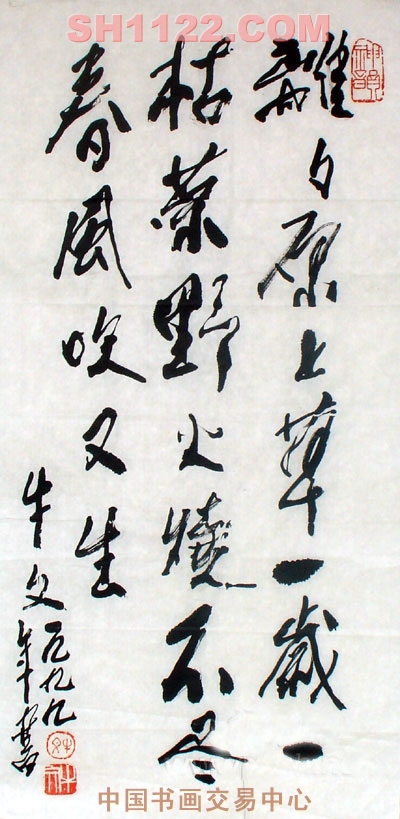 SH1122.COM
離々原上草一歲一
枯榮野火燒不尽
春風吹又生
牛文一九九九
年書
中国书画交易中心